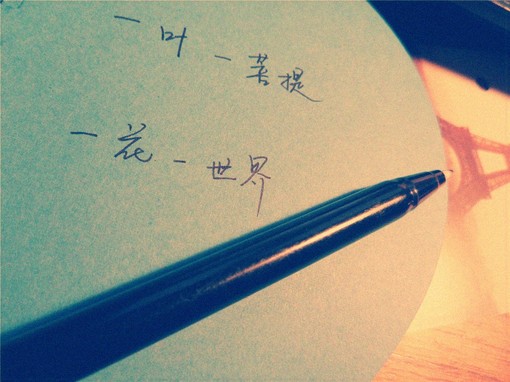 一叶一菩提
一花一世界